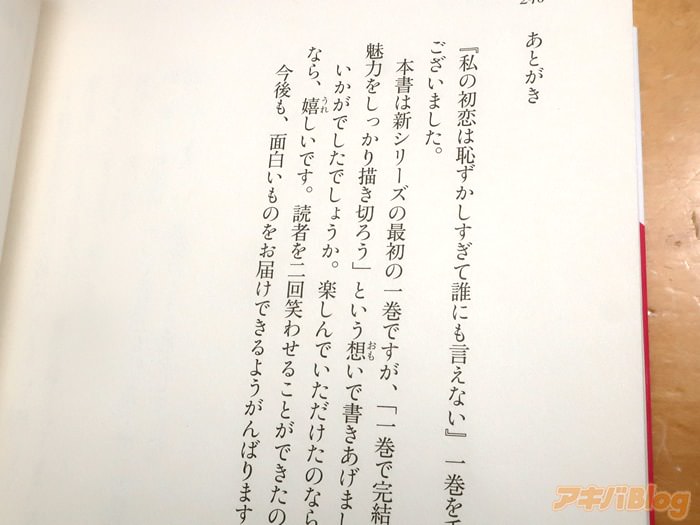 あとがき
『私の初恋は恥ずかしすぎて誰にも言えない』一巻を
ございました。
本書は新シリーズの最初の一巻ですが、「一巻で完結
魅力をしっかり描き切ろう」という想いで書きあげまし
いかがでしたでしょうか。楽しんでいただけたのなら
なら、嬉しいです。読者を二回笑わせることができたの
今後も、面白いものをお届けできるようがんばります
アキバBlog